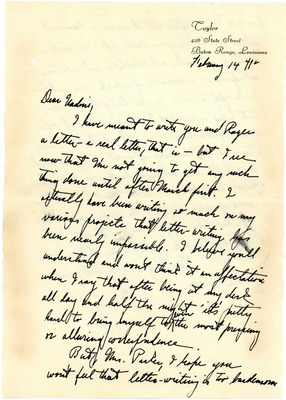 Taylor
426 State Street
Baton Rouge, Louisiana
February 14
Dear Nadine,
I have meant to write you and Roger
a letter – a real letter, that is – but I see
now that I'm not going to get any such
thing done until after March first. I
actually have been writing so much on my
various projects that letter-writing
been nearly impossible. I believe you'll
understand and won't think it an affectation
when I say that after being at my desk
all day and half the night it's pretty
hard to bring myself to even the most
or alluring correspondence.
But, Mrs. Parker, I hope you
won't feel that letter-writing is too burdensome